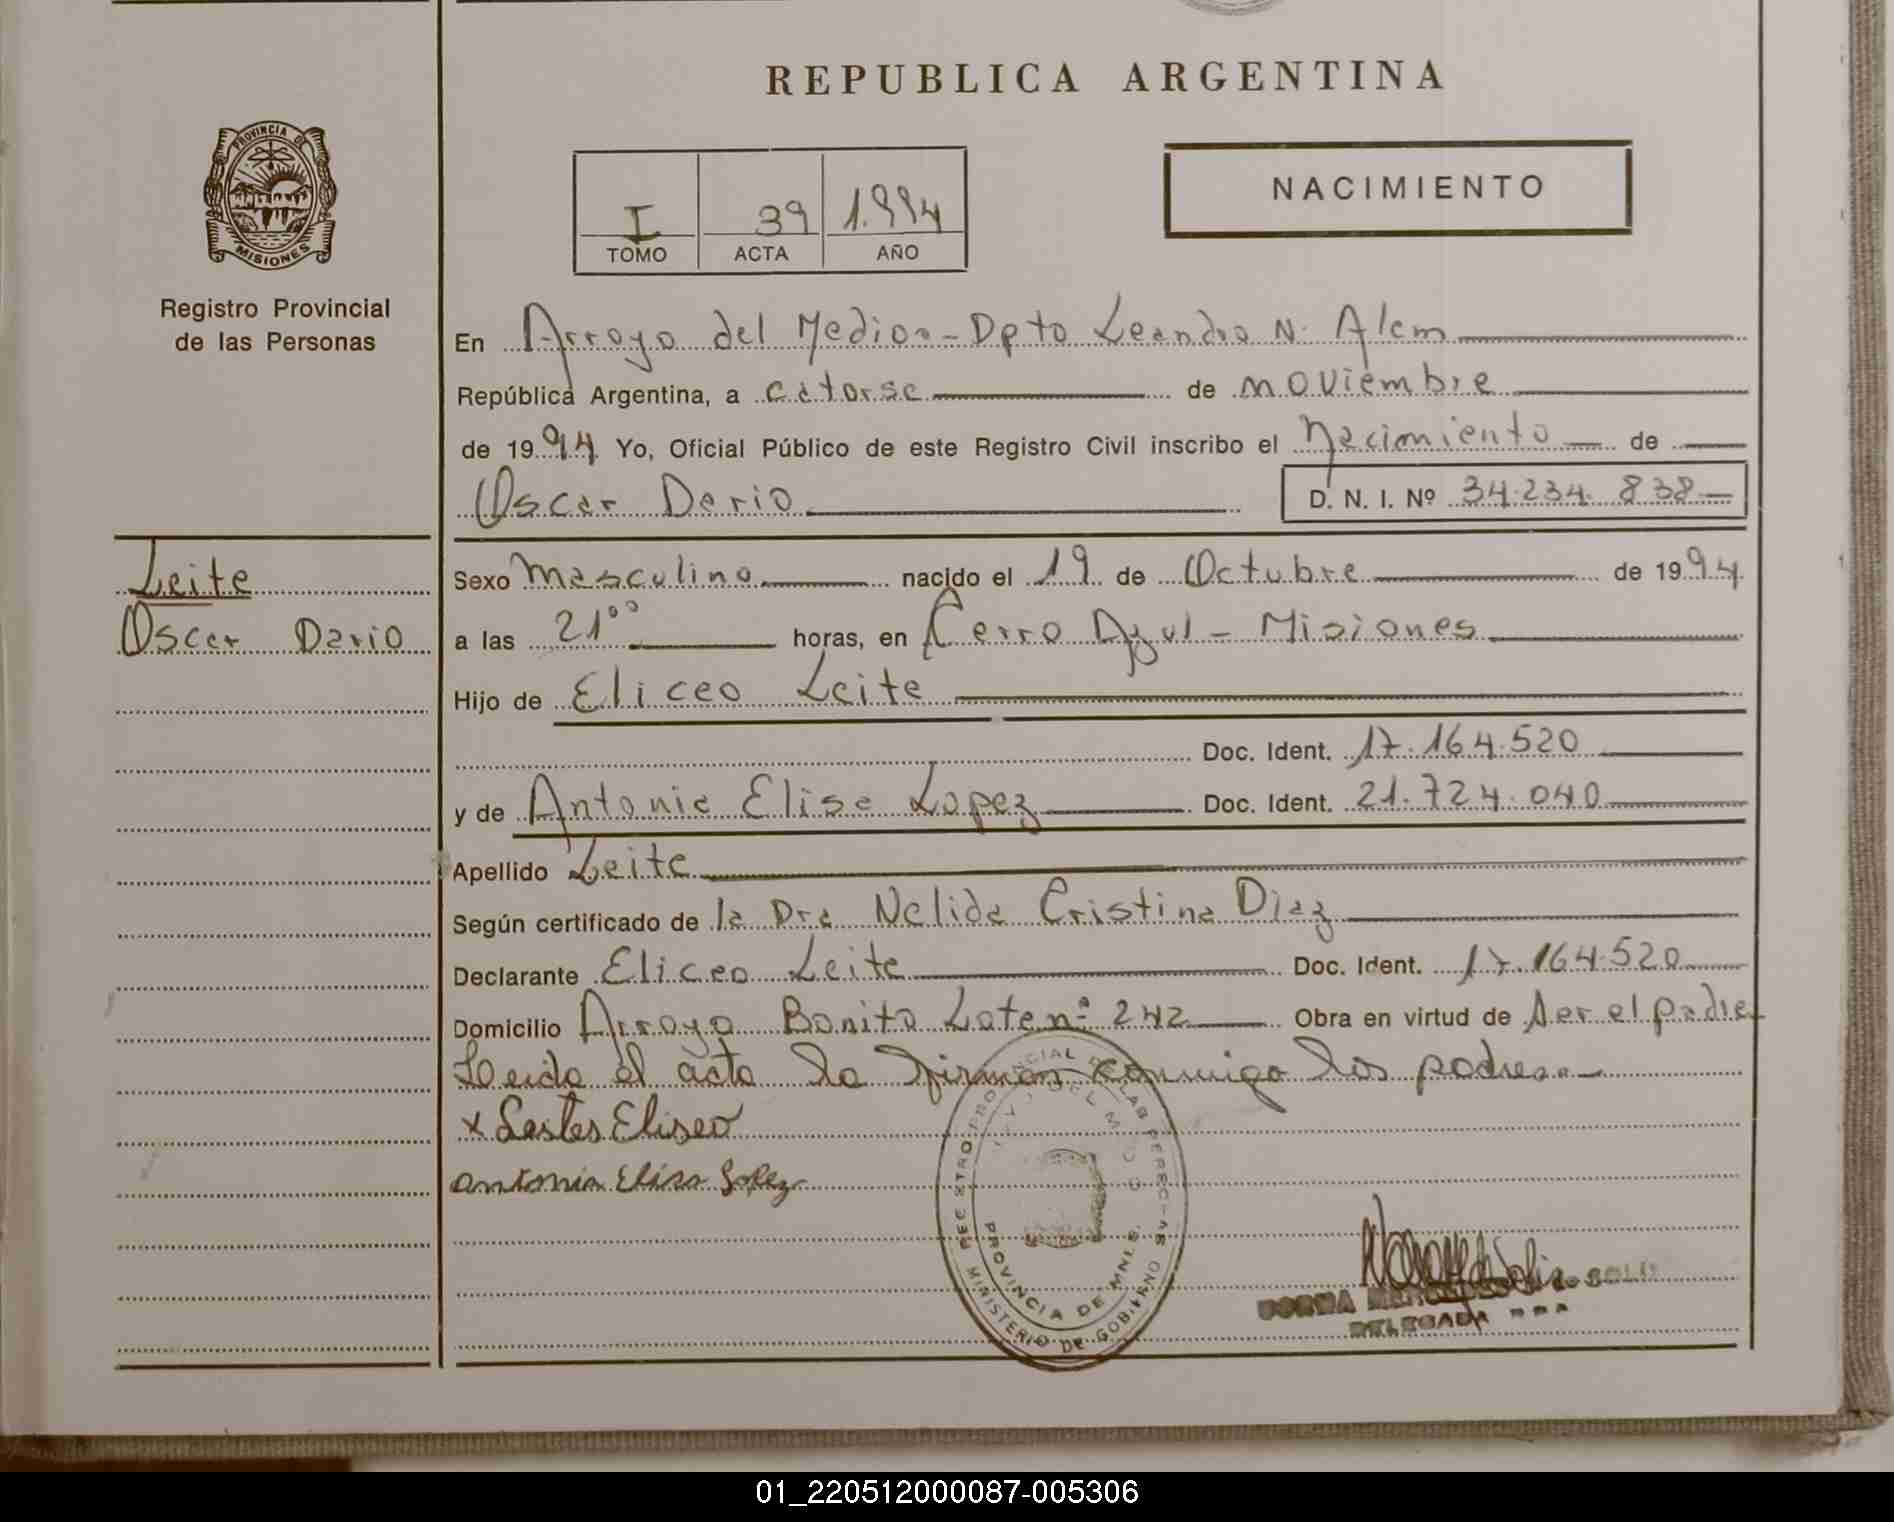 REPUBLICA ARGENTINA
PROVINCIA DE
MISIONES
Registro Provincial
de las Personas
I 39 1.994
TOMO ACTA AÑO
NACIMIENTO
En Arroyo del Medio - Dpto Leandro N. Alem
República Argentina, a catorse de noviembre
de 1994 Yo, Oficial Público de este Registro Civil inscribo el nacimiento de
Oscar Dario D. N. I. Nº 34.234.838
Leite
Oscar Dario
Sexo masculino nacido el 19 de Octubre de 1994
a las 21⁰⁰ horas, en Cerro Azul - Misiones
Hijo de Eliceo Leite
Doc. Ident. 17.164.520
y de Antonia Elisa Lopez Doc. Ident. 21.724.040
Apellido Leite
Según certificado de la Dra Nelida Cristina Diaz
Declarante Eliceo Leite Doc. Ident. 17.164.520
Domicilio Arroyo Bonito Lote nº 242 Obra en virtud de ser el padre
Leida el acta la firman conmigo los padres.-
x Lestes Eliseo
Antonia Elisa Lopez
PROVINCIA DE MNES.
MINISTERIO DE GOBIERNO
NORMA
DELEGADA
01_220512000087-005306